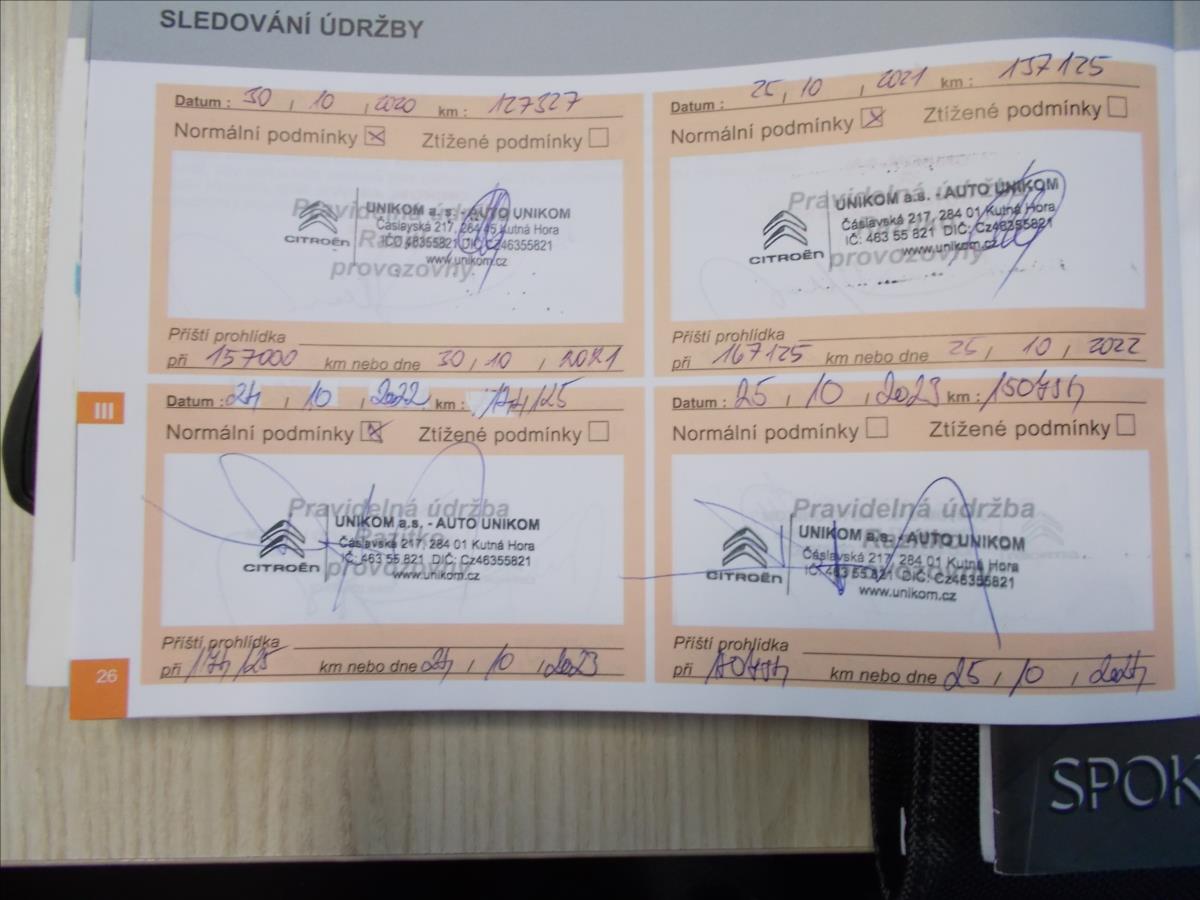 SLEDOVÁNÍ ÚDRŽBY
Datum : 30 , 10 , 2020 km : 127327
Normální podmínky Ztížené podmínky
Pravidelná
UNIKOM a. s. - AUTO UNIKOM
Čáslavská 217, 284 45 Kutná Hora
IČO 46355821 DIČ CZ46355821
www.unikom.cz
CITROËN
provozovny
Příští prohlídka
při 157000 km nebo dne 30 , 10 , 2021
Datum : 25 , 10 , 2021 km : 137125
Normální podmínky Ztížené podmínky
Pravidelná údržba
UNIKOM a.s. - AUTO UNIKOM
Čáslavská 217, 284 01 Kutná Hora
IČ: 463 55 821 DIČ: Cz46355821
www.unikom.cz
CITROËN
provozovny
Příští prohlídka
při 167125 km nebo dne 25 , 10 , 2022
III
Datum : 24 , 10 , 2022 km :
Normální podmínky Ztížené podmínky
Pravidelná údržba
UNIKOM a.s. - AUTO UNIKOM
Razítko
Čáslavská 217, 284 01 Kutná Hora
IČ: 463 55 821 DIČ: Cz46355821
www.unikom.cz
CITROËN
provozovny
Příští prohlídka
při km nebo dne 24 , 10 , 2023
Datum : 25 , 10 , 2023 km :
Normální podmínky Ztížené podmínky
Pravidelná údržba
UNIKOM a.s. - AUTO UNIKOM
Razítko
Čáslavská 217, 284 01 Kutná Hora
IČ: 463 55 821 DIČ: Cz46355821
www.unikom.cz
CITROËN
provozovny
Příští prohlídka
při km nebo dne 25 , 10 , 2024
26
SPOK